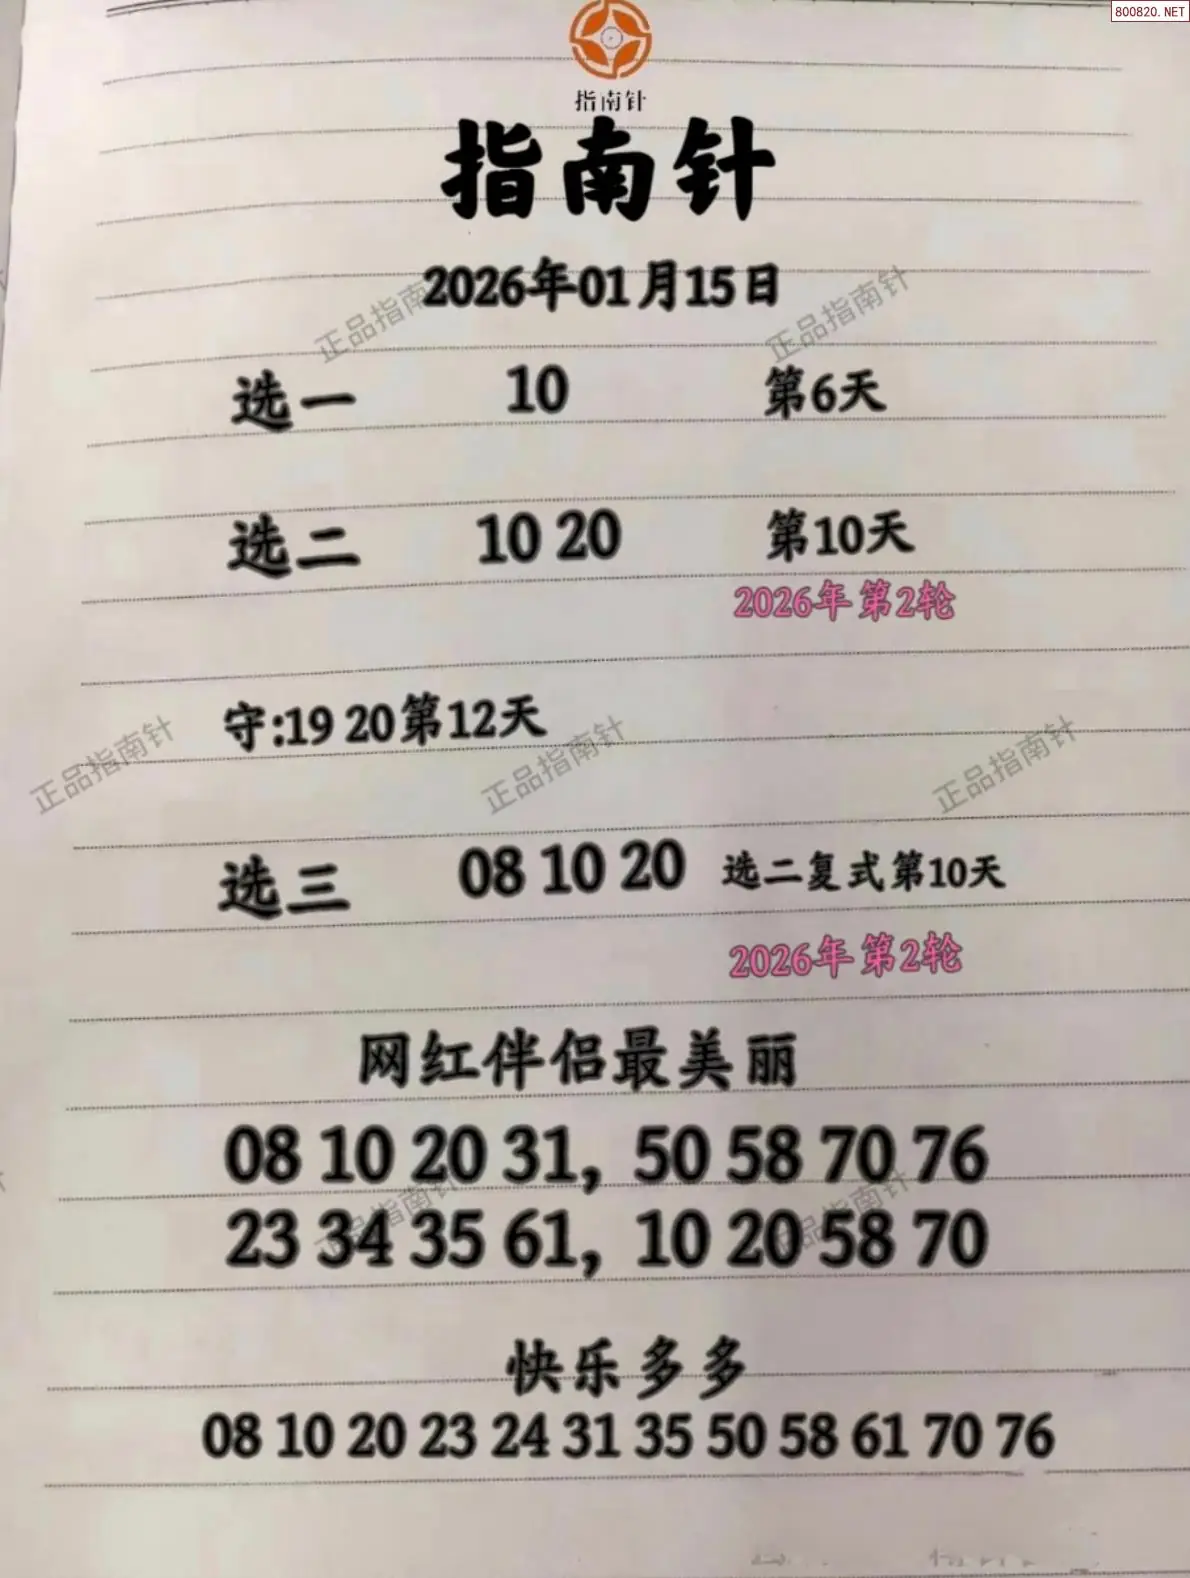 800820.NET
指南针
指南针
2026年01月15日
正品指南针 正品指南针
选一 10 第6天
选二 10 20 第10天
2026年第2轮
守:19 20第12天
正品指南针 正品指南针 正品指南针
选三 08 10 20 选二复式第10天
2026年第2轮
网红伴侣最美丽
08 10 20 31, 50 58 70 76
正品指南针 正品指南针
23 34 35 61, 10 20 58 70
快乐多多
08 10 20 23 24 31 35 50 58 61 70 76